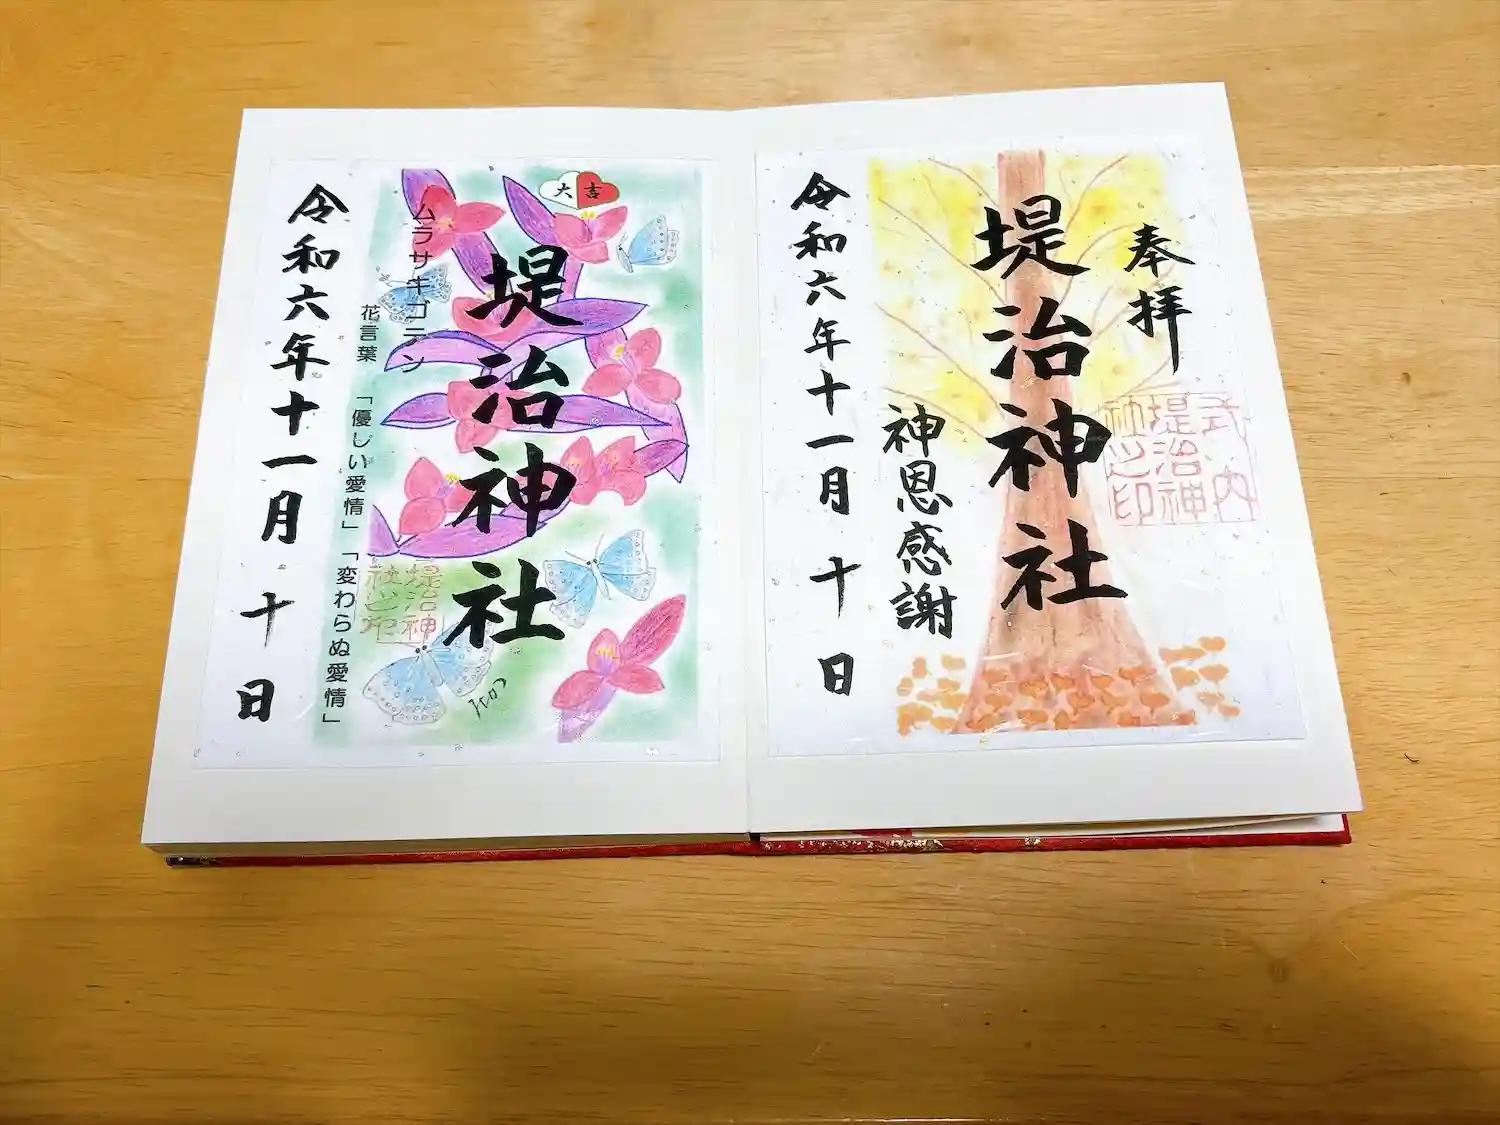 奉拝
堤治神社
式内
堤治神
社之印
神恩感謝
令和六年十一月十日
大吉
堤治神社
堤治神
社之印
ムラサキゴテン
花言葉
「優しい愛情」「変わらぬ愛情」
令和六年十一月十日